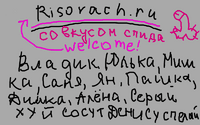 Risovach.ru
со вкусом спида
welcome!
Владик, Юлька, Миш
ка, Саня, Ян, Пашка,
Димка, Алёна, Серый
сосут Денису